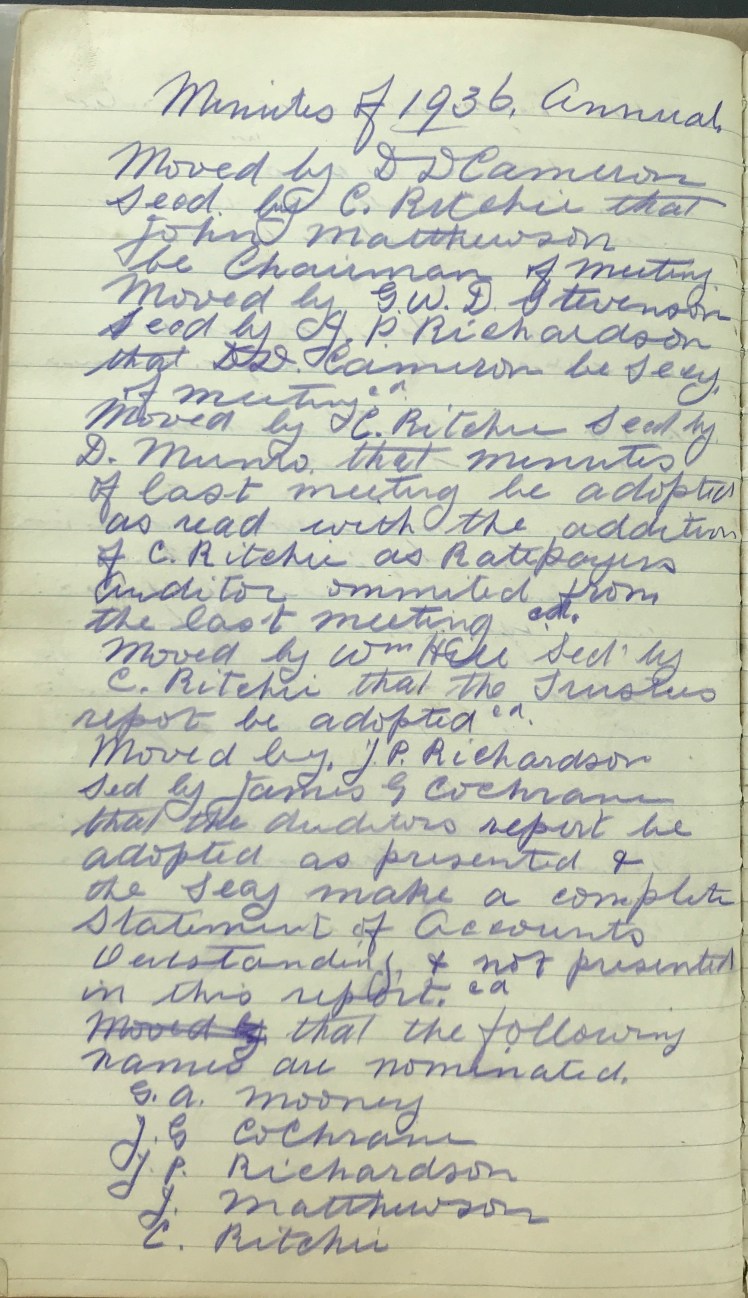 Minutes of 1936. Annual.
Moved by D D Cameron
Secd. by C. Ritchie that
John Matthewson
be Chairman of meeting
Moved by G. W. D. Stevenson
Secd by J. P. Richardson
that D.D. Cameron be Secy.
of meeting cd
Moved by C. Ritchie Secd by
D. Munro. that minutes
of last meeting be adopted
as read with the addition
of C. Ritchie as Ratepayers
auditor ommited from
the last meeting cd.
Moved by Wm Sed by
C. Ritchie that the Trustees
repot be adopted cd.
Moved by. J P. Richardson
Sed by James G Cochrane
that the auditors report be
adopted as presented &
the Secy make a complete
Statement of Accounts
Outstanding & not presented
in this report. cd
Moved by that the following
names are nominated.
G. A. Mooney
J. G Cochrane
J. P. Richardson
J. Matthewson
C. Ritchie